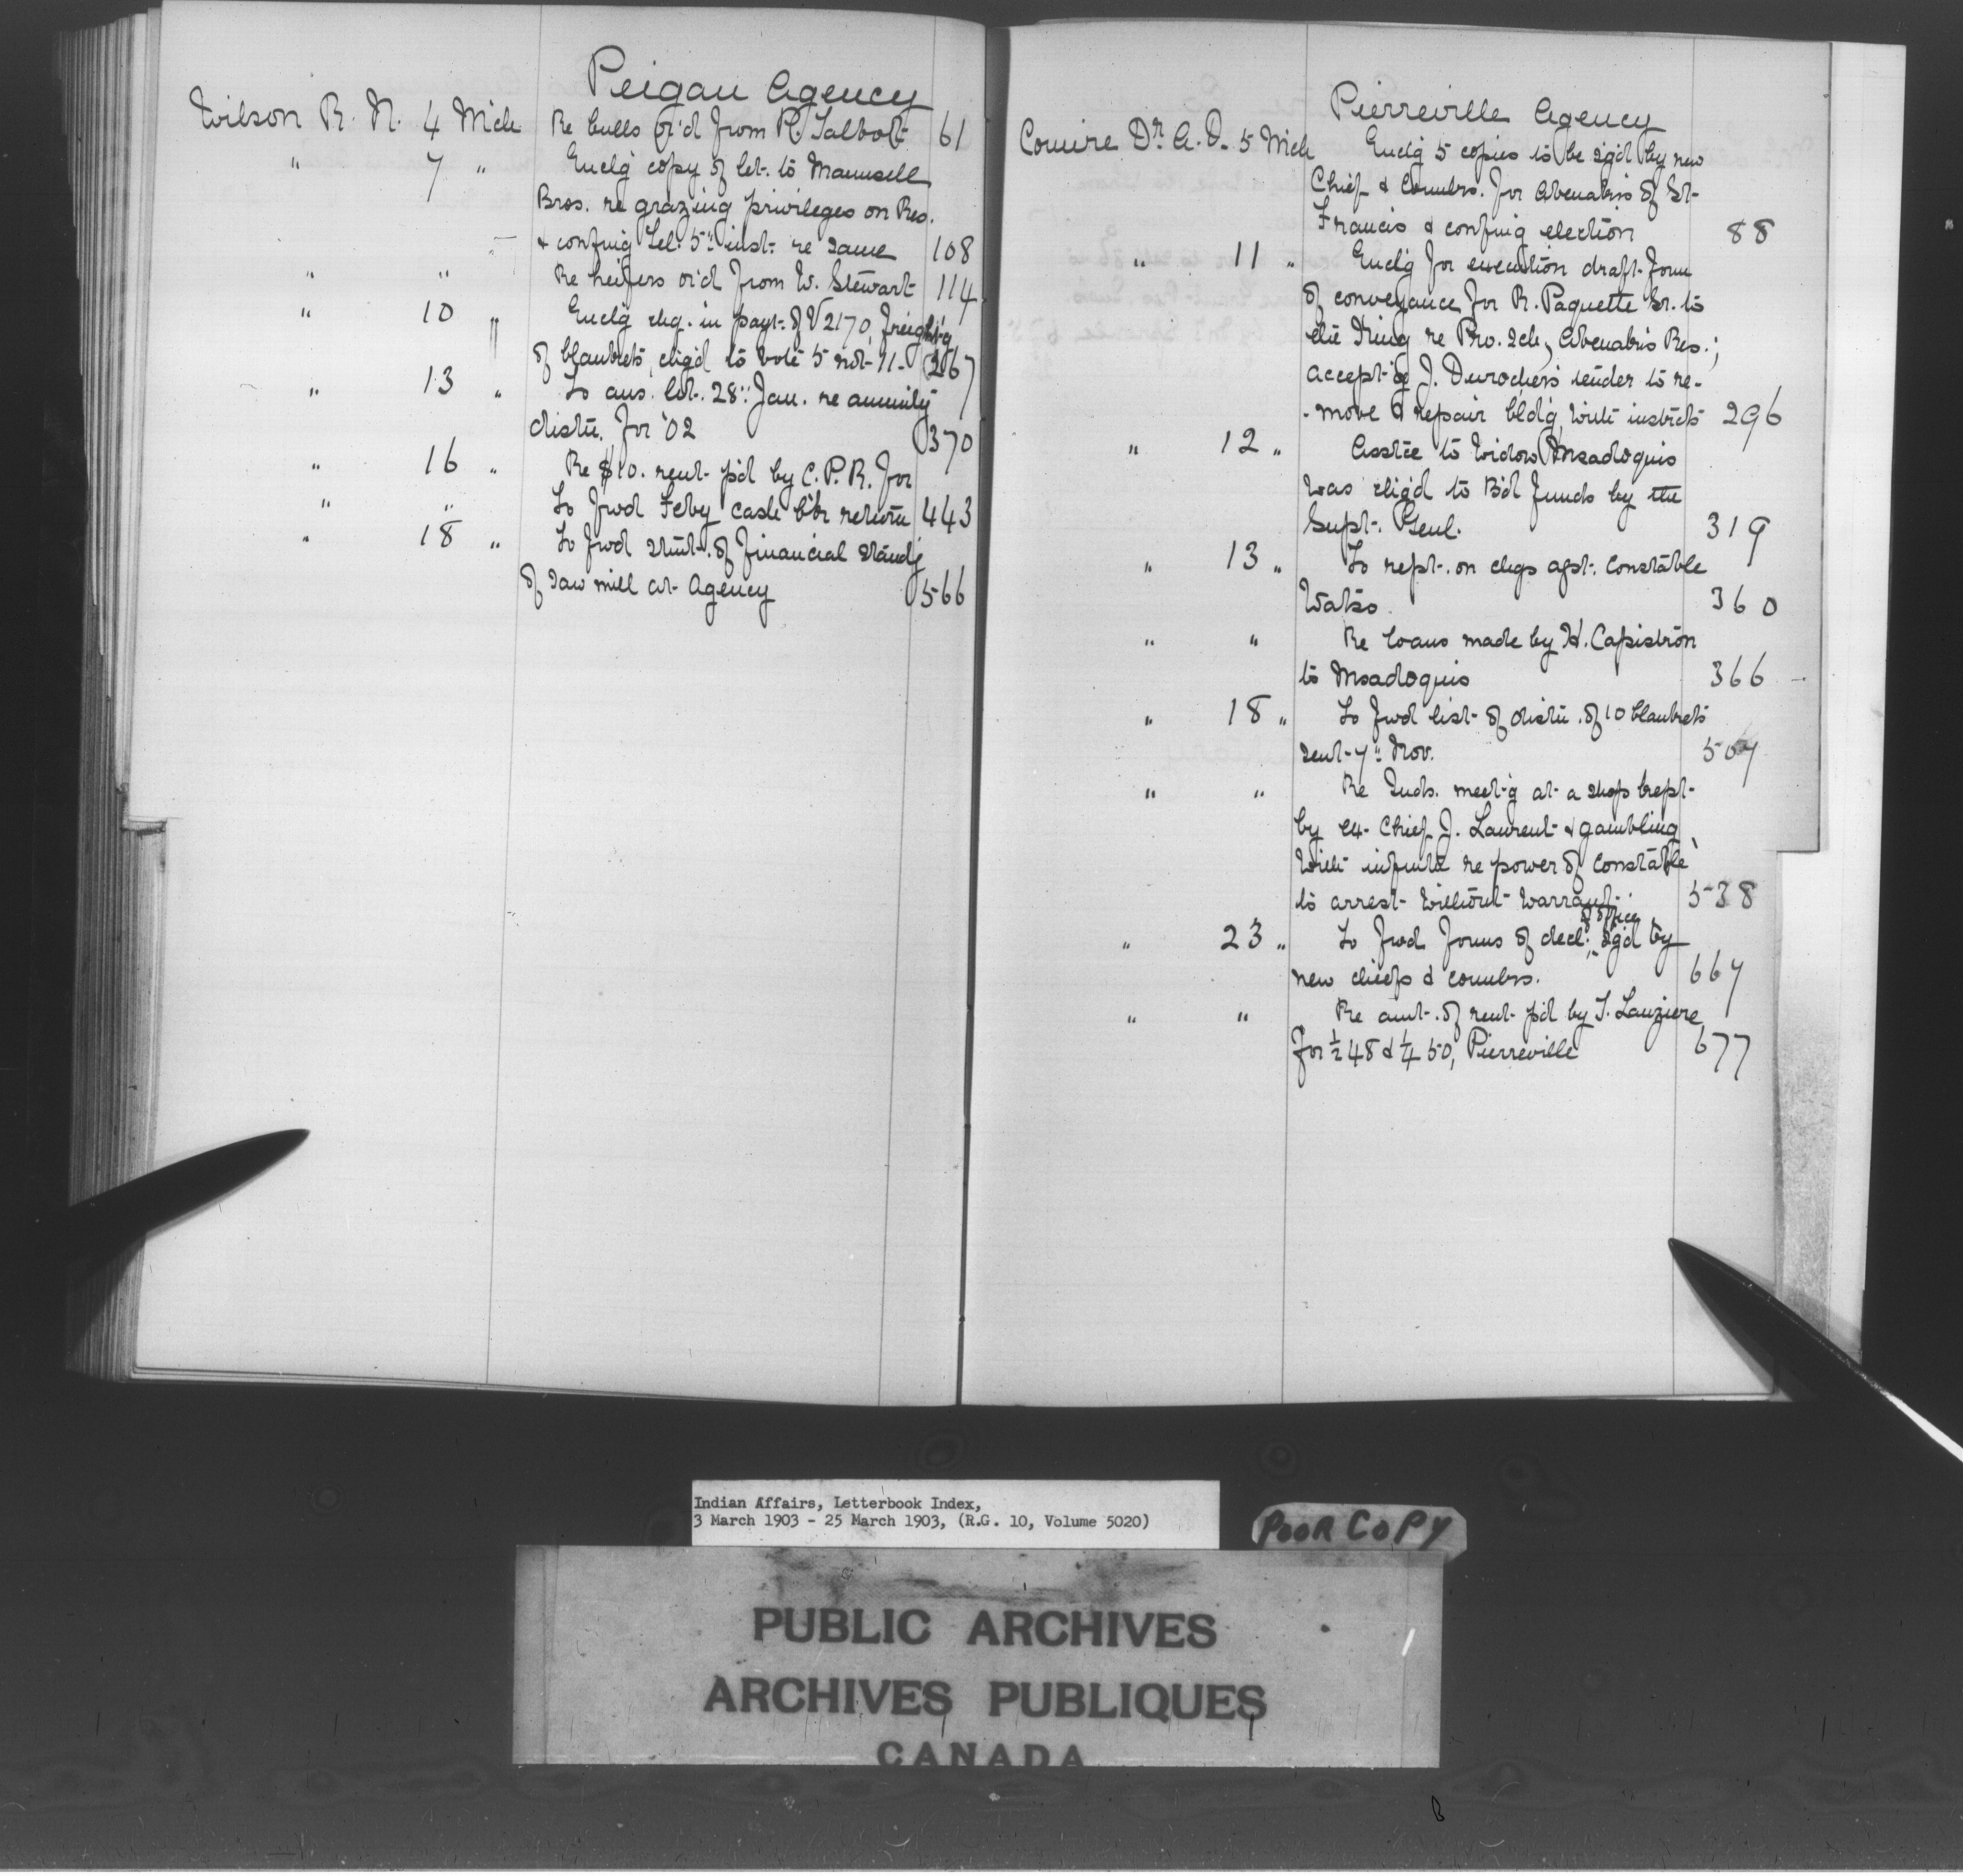 Peigan Agency
Wilson R. N. 4 Mch Re bulls or'd from R. Talbot 61
" 7 " Enclg copy of let. to Maunsell
Bros. re grazing privileges on Res.
& confing tel. 5" inst. re same 108
" " Re heifers or'd from W. Stewart 114
" 10 " Enclg chq. in payt. of V2170, freight'g
of blankets, chg'd to vote 5 not 11. 267
" 13 " To ans. let. 28" Jan. re annuity
distn. for '02 370
" 16 " Re $10. rent pd by C.P.R. for
" " To fwd Feby cash b'k return 443
" 18 " To fwd stmt. of financial stand'g
of saw mill at Agency 566
Pierreville Agency
Comire Dr. A. O. 5 Mch Enclg 5 copies to be sg'd by new
Chief & Counlrs. for Abenakis of St.
Francis & confing election 88
" 11 " Enclg for execution draft form
of conveyance for R. Paquette Sr. to
the King re Pro. Sch, Abenakis Res.;
accept'g J. Durocher's tender to re-
-move & repair bld'g, with instrcts 296
" 12 " Asstce to Widow Msadoquis
was chg'd to B'd funds by the
Supt. Genl. 319
" 13 " To rept. on chgs agst. Constable
Watso. 360
" " Re loans made by H. Capistron
to Msadoquis 366
" 18 " To fwd list of distn. of 10 blankets
sent 7" Nov. 507
" " Re Inds. meet'g at a shop kept
by ex-Chief J. Laurent & gambling,
with infmtn re power of Constable
to arrest without warrant. 538
of office
" 23 " To fwd forms of decl. sg'd by
new chiefs & counlrs. 667
" " Re amt. of rent pd by T. Lauziere
for ½ 48 & ¼ 50, Pierreville 677
Indian Affairs, Letterbook Index,
3 March 1903 - 25 March 1903, (R.G. 10, Volume 5020)
POOR COPY
PUBLIC ARCHIVES
ARCHIVES PUBLIQUES
CANADA